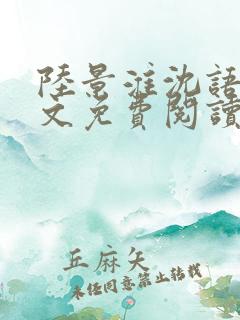 陸景淮沈語
文免費閱讀
丘麻矢
未經同意禁止轉載